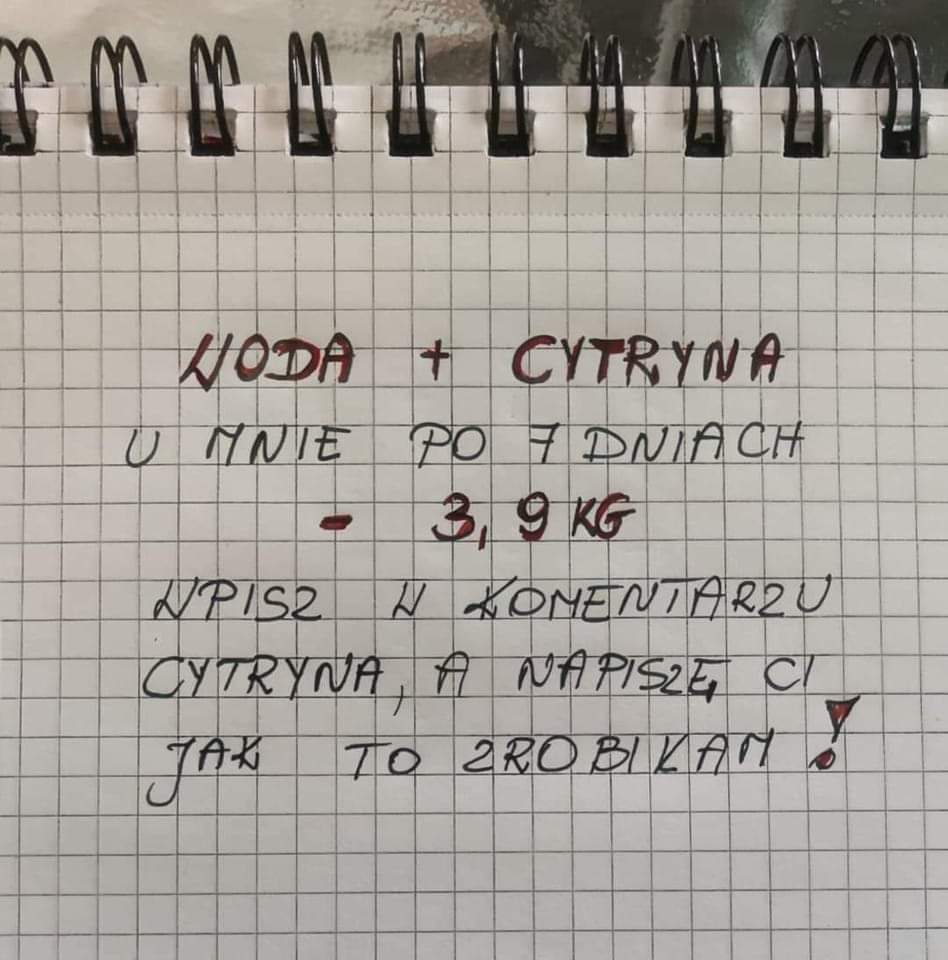 WODA + CYTRYNA
U MNIE PO 7 DNIACH
- 3,9 KG
WPISZ W KOMENTARZU
CYTRYNA, A NAPISZĘ CI
JAK TO ZROBIŁAM!